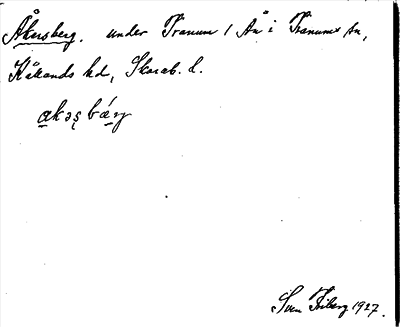 Åkersberg. under Tranum 1 An i Tranums sn,
Kållands hd, Skarab. l.
akəs̨ bǽry
Sven Friberg 1927.